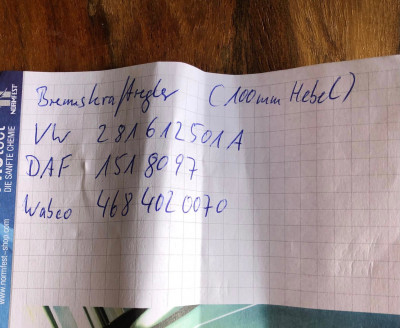 Bremskraftregler (100mm Hebel)
VW 281612501A
DAF 1518097
Wabco 4684020070
NORMFEST
DIE SANFTE CHEMIE
www.normfest-shop.com